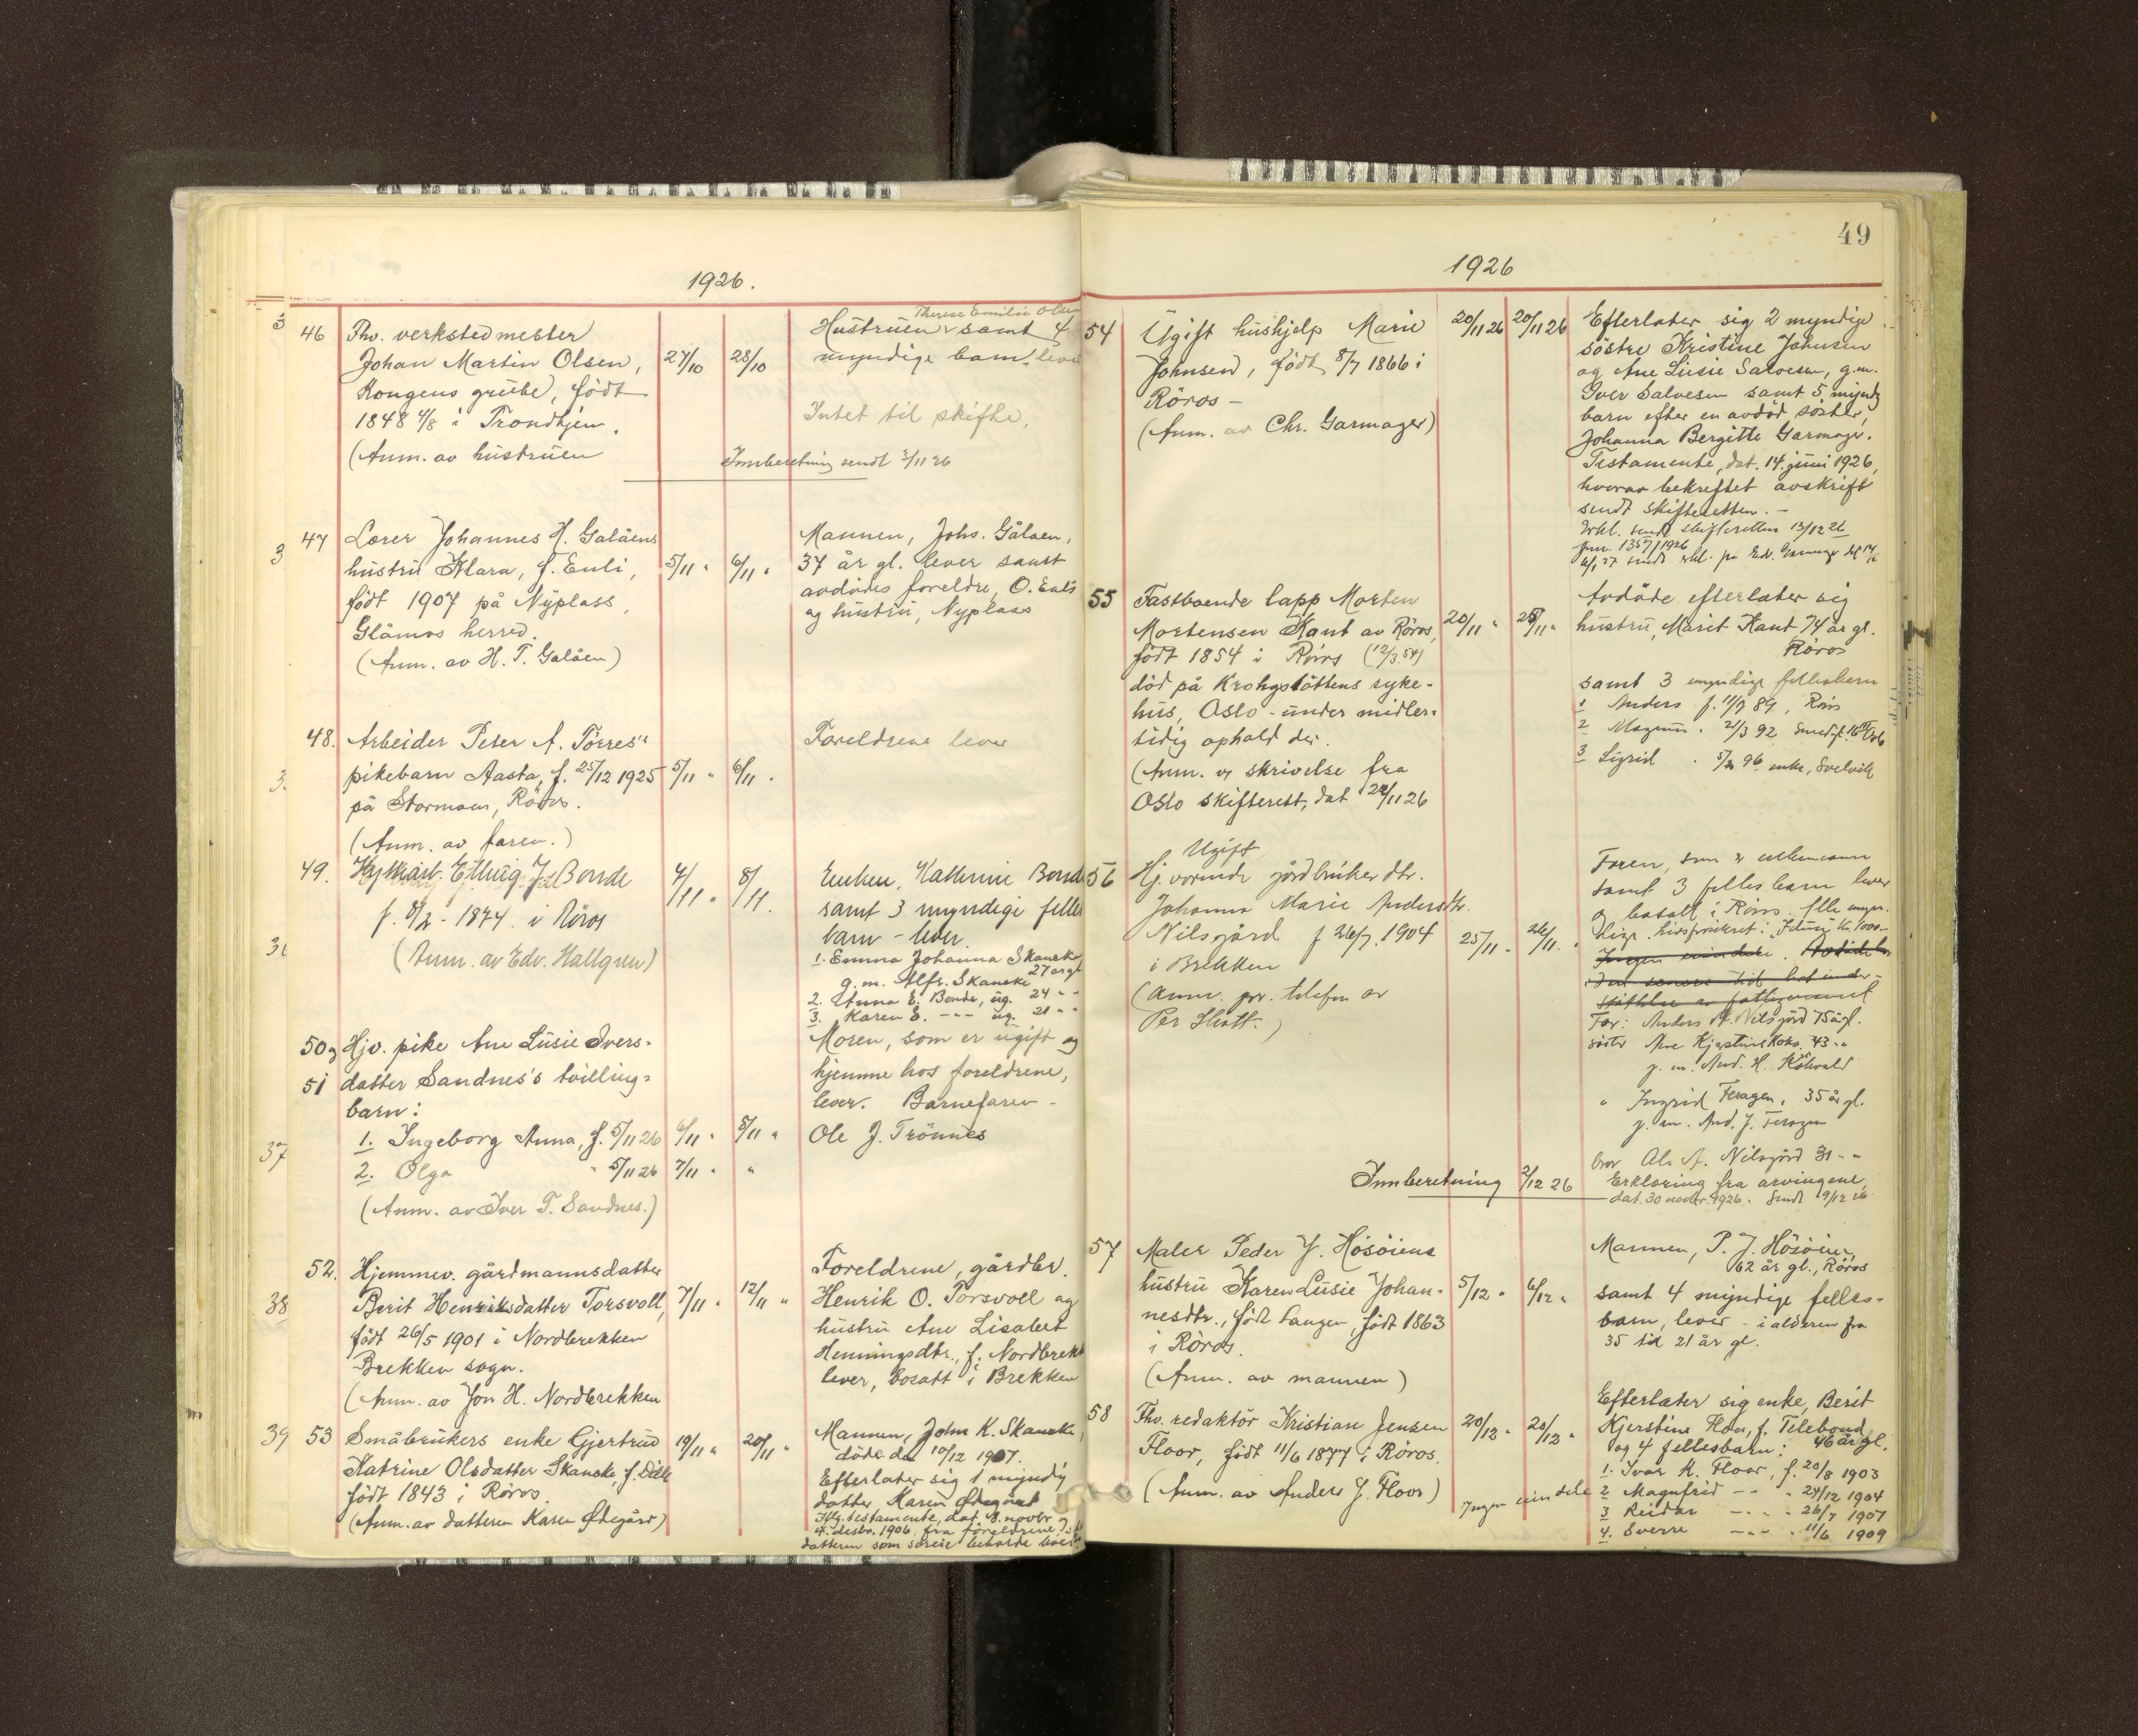 1926.
46 Fhv. verkstedmester
Johan Martin Olsen,
Kongens grube, født
1848 4/8 i Trondhjem.
(Anm. av hustruen
27/10 28/10
Therese Emilie Olsen
Hustruen samt 4
myndige barn lever
Intet til skifte.
Innberetning sendt 2/11 26
47 Lærer Johannes H. Galåens
hustru Klara, f. Enli,
født 1907 på Nyplass,
Glåmos herred.
(Anm. av H. T. Galåen)
5/11 " 6/11 "
Mannen, Johs. Gålaen,
37 år gl. lever samt
avdødes foreldre, O. Enli
og hustru, Nyplass
48. Arbeider Peter A. Tørres's
pikebarn Aasta, f. 25/12 1925
på Stormoen, Røros.
(Anm. av faren.)
5/11 " 6/11 "
Foreldrene lever
49. Hyttearb. Elling J. Bonde
f. 8/2 - 1874. i Røros
(Anm. av Edv. Hallgren)
4/11 " 8/11 "
Enken, Kathrine Bonde
samt 3 myndige felles
barn - lever.
1. Emma Johanna Skancke
g. m. Alfr. Skancke 27 år gl
2. Anna E. Bonde, ug. 24 " "
3. Karen E. - " - ug. 21 " "
50 og Hjv. pike Ane Lusie Ivers-
51 datter Sandnes's tvilling-
barn:
1. Ingeborg Anna, f. 5/11 26 6/11 " 8/11 "
2. Olga " 5/11 26 7/11 " "
(Anm. av Iver T. Sandnes.)
Moren, som er ugift og
hjemme hos foreldrene,
lever. Barnefaren -
Ole J. Trønnes
52. Hjemmev. gårdmannsdatter
Berit Henriksdatter Torsvoll,
født 26/5 1901 i Nordbrekken
Brekken sogn.
(Anm. av Jon H. Nordbrekken
7/11 " 12/11 "
Foreldrene, gårdbr.
Henrik O. Torsvoll og
hustru Ane Lisabet
Henningsdtr., f. Nordbrekk
lever, bosatt i Brekken
38
39 53 Småbrukers enke Gjertrud
Katrine Olsdatter Skancke, f. Dille
født 1843 i Røros.
(Anm. av datteren Karen Ødegård)
19/11 " 20/11 "
Mannen, John K. Skancke,
døde den 10/12 1907.
Efterlater sig 1 myndig
datter, Karen Ødegård
Iflg. testamente, dat. 8. novbr og
4. desbr. 1906, fra foreldrene til
datteren som såleie beholde boet
49
1926
54 Ugift hushjelp Marie
Johnsen, født 8/7 1866 i
Røros -
(Anm. av Chr. Garmager)
20/11 26 20/11 26
Efterlater sig 2 myndige
søstre Kristine Johnsen
og Ane Lusie Salvesen, g.m.
Iver Salvesen samt 5 myndg
barn efter en avdød søster,
Johanna Bergitte Garmager.
Testamente, dat. 14. juni 1926,
hvorav bekreftet avskrift
sendt skifteretten. -
Erkl. sendt skifteretten 13/12 26
jnr. 1357/1926
55 Fastboende lapp Morten
Mortensen Kant av Røros,
født 1854 i Røros (12/3.54)
død på Krohgstøttens syke-
hus, Oslo - under midler-
tidig ophold der.
(Anm. v. skrivelse fra
Oslo skifterett, dat 22/11 26
20/11 " 25/11 "
Avdøde efterlater sig
hustru, Marit Kant 74 år gl.
Røros
samt 3 myndige fellesbarn
1 Anders f. 11/7 89, Røros
2 Magnus. 21/3 92
3 Sigrid 5/2 96 enke, Svelvik
56 Ugift
Hj. værende gårdbruker dtr.
Johanna Marie Andersdtr.
Nilsgård f 26/7. 1904
i Brekken
(Anm. pr. telefon av
Per Skott.)
25/11 " 26/11 "
Faren, som er enkemann
samt 3 felles barn lever
og bosatt i Røros. Alle myn-
Far: Anders A. Nilsgård 75 år gl.
søster Ane Kjerstine Kokv. 43 - "
g. m. And. H. Kokvold
" Ingrid Feragen, 35 år gl.
g. m. And. J. Feragen
bror Ole A. Nilsgård 31 - "
Innberetning 2/12 26 Erklæring fra arvingene,
dat. 30 novbr. 1926. Sendt 9/12 26
57 Maler Peder J. Høsøiens
hustru Karen Lusie Johan-
nesdtr., født Langen, født 1863
i Røros.
(Anm. av mannen)
5/12 " 6/12 "
Mannen, P. J. Høsøien,
62 år gl., Røros
samt 4 myndige felles-
barn, lever - i alderen fra
35 til 21 år gl.
58 Fhv. redaktør Kristian Jensen
Floor, født 11/6 1877 i Røros.
(Anm. av Anders J. Floor)
20/12 " 20/12 "
Ingen eiendele
Efterlater sig enke, Berit
Kjerstine Floor, f. Tilebond
og 4 fellesbarn: 46 år gl.
1. Ivar K. Floor, f. 20/8 1903
2 Magnfrid - - " 24/12 1904
3 Reidar - " - " 26/7 1907
4. Sverre - " - " 11/6 1909